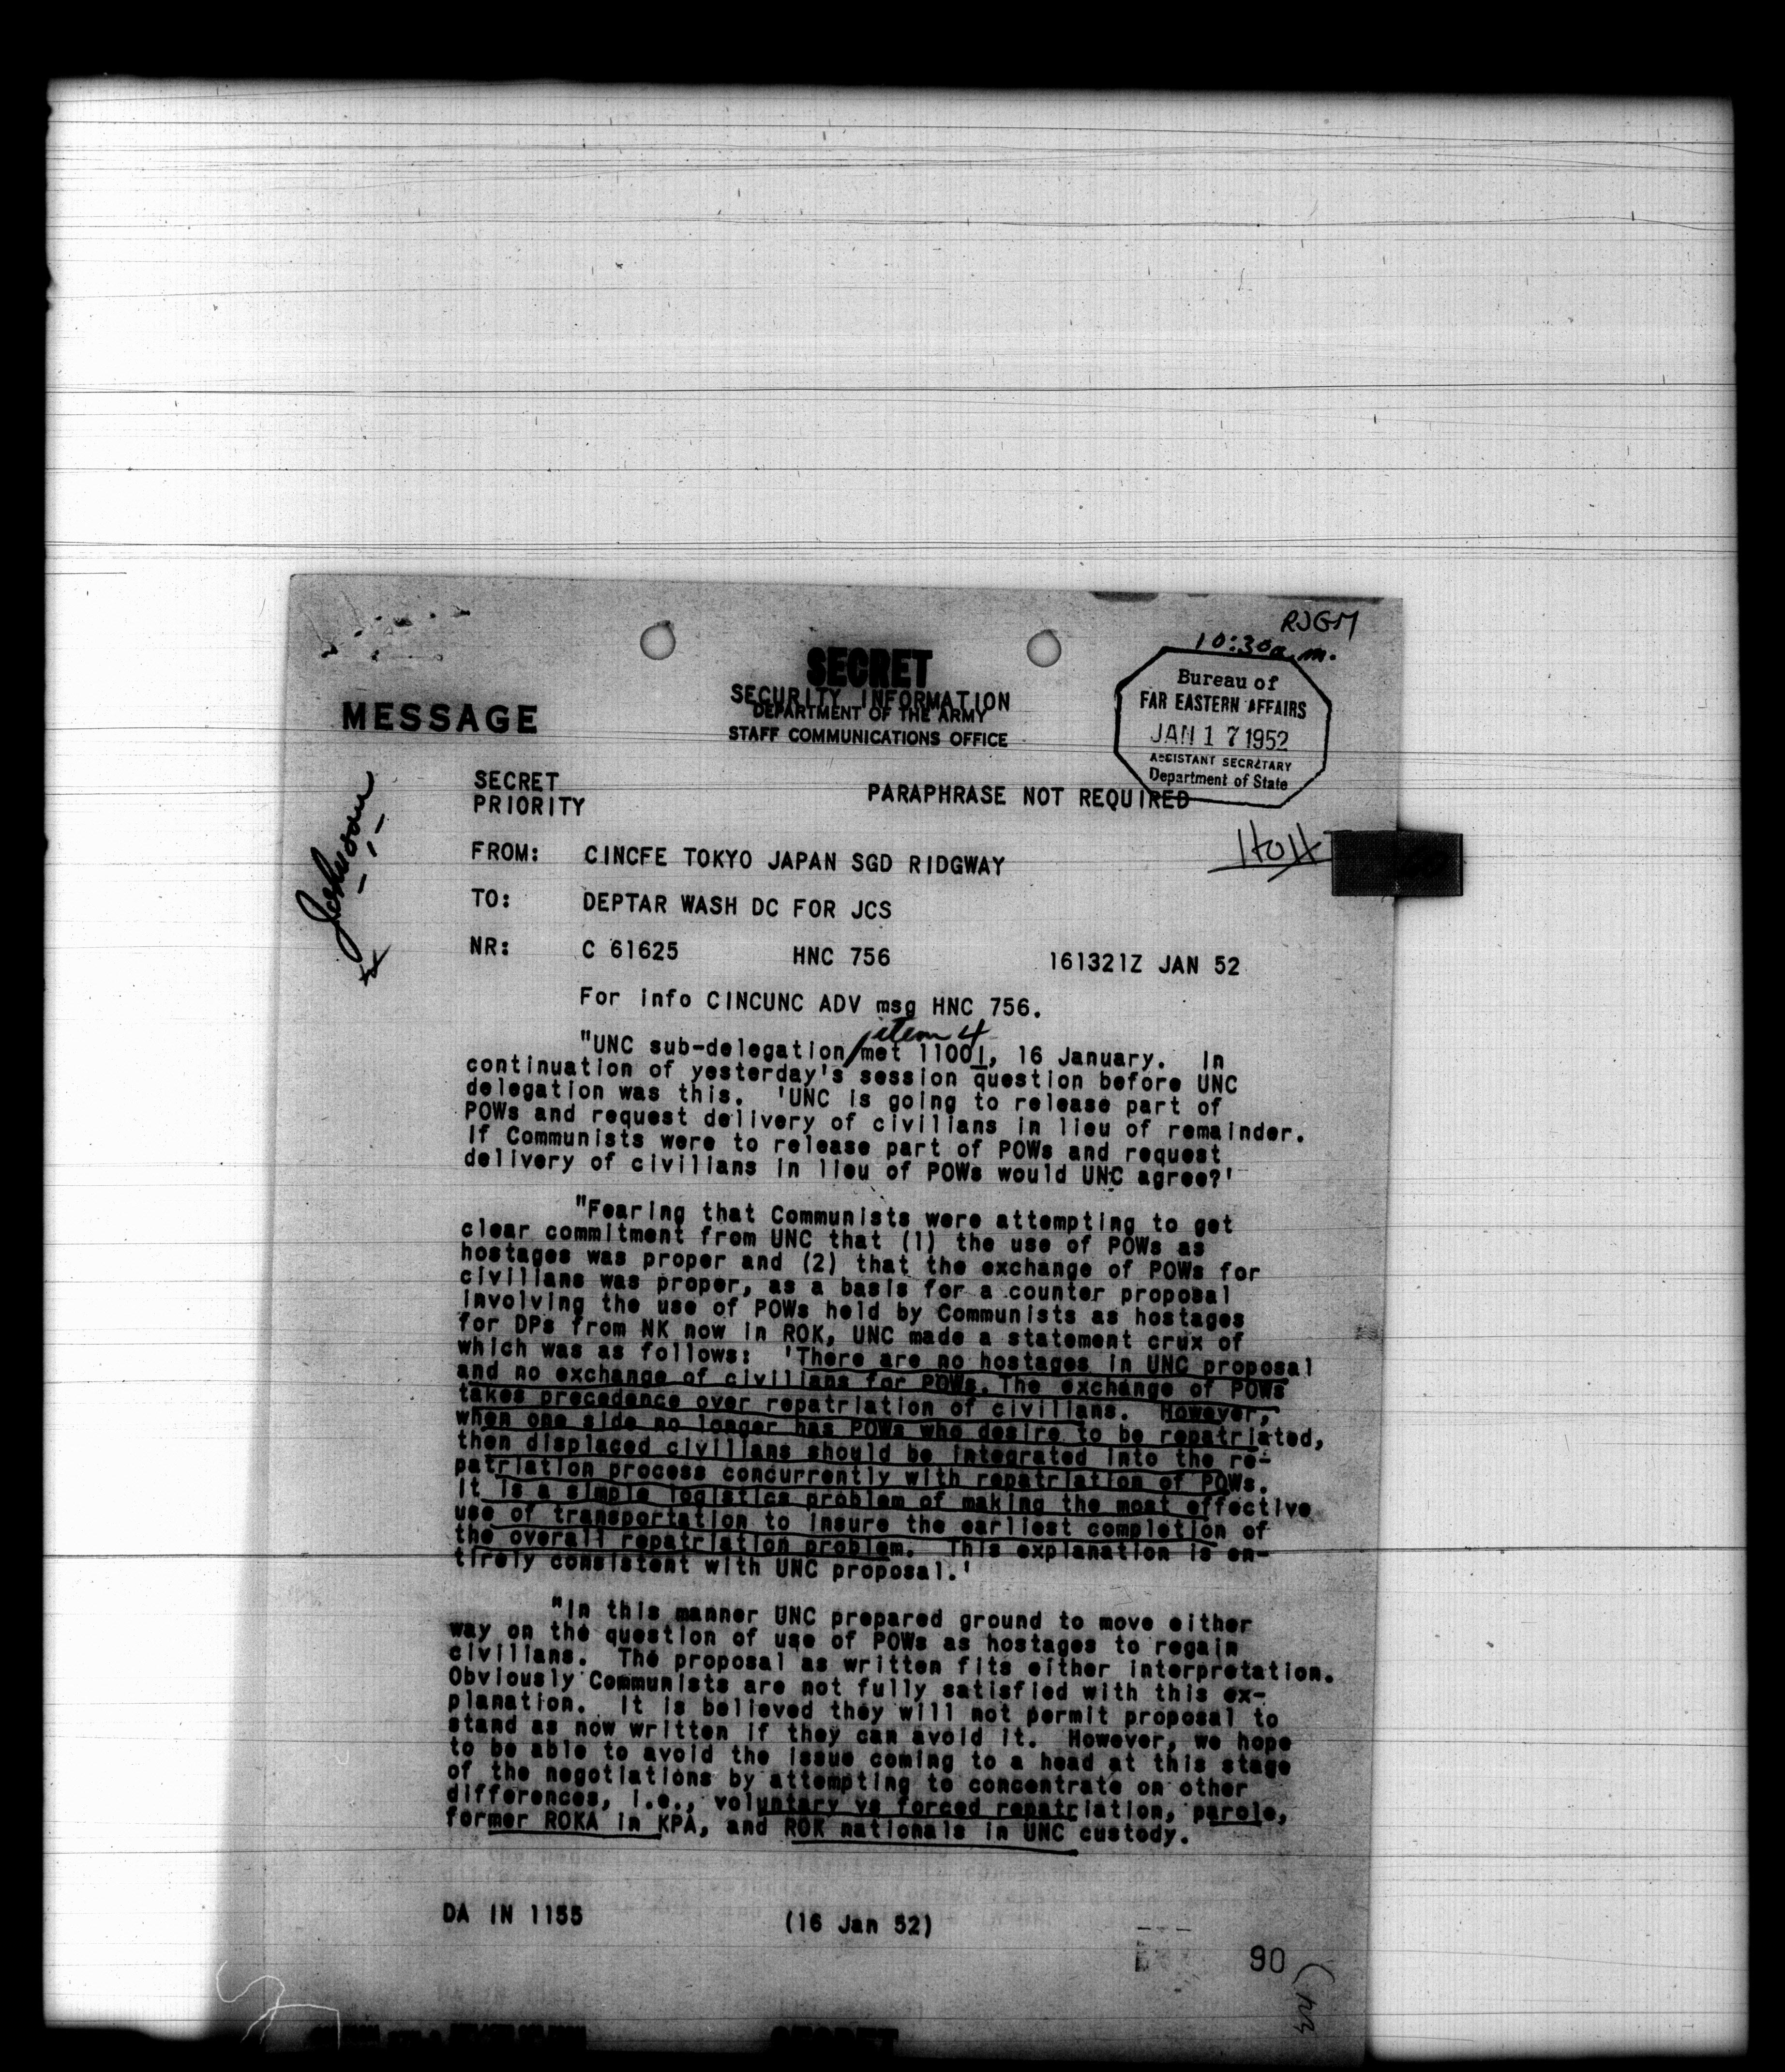 RJGM
10:30a.m.
SECRET
SECURITY INFORMATION
DEPARTMENT OF THE ARMY
STAFF COMMUNICATIONS OFFICE
MESSAGE
Bureau of
FAR EASTERN AFFAIRS
JAN 17 1952
ASSISTANT SECRETARY
Department of State
SECRET
PRIORITY
PARAPHRASE NOT REQUIRED
Johnson
FROM: CINCFE TOKYO JAPAN SGD RIDGWAY
TO: DEPTAR WASH DC FOR JCS
NR: C 61625 HNC 756 161321Z JAN 52
For info CINCUNC ADV msg HNC 756.
item 4
"UNC sub-delegation met 1100I, 16 January. In
continuation of yesterday's session question before UNC
delegation was this. 'UNC is going to release part of
POWs and request delivery of civilians in lieu of remainder.
If Communists were to release part of POWs and request
delivery of civilians in lieu of POWs would UNC agree?'
"Fearing that Communists were attempting to get
clear commitment from UNC that (1) the use of POWs as
hostages was proper and (2) that the exchange of POWs for
civilians was proper, as a basis for a counter proposal
involving the use of POWs held by Communists as hostages
for DPs from NK now in ROK, UNC made a statement crux of
which was as follows: 'There are no hostages in UNC proposal
and no exchange of civilians for POWs. The exchange of POWs
takes precedence over repatriation of civilians. However,
when one side no longer has POWs who desire to be repatriated,
then displaced civilians should be integrated into the re-
patriation process concurrently with repatriation of POWs.
It is a simple logistics problem of making the most effective
use of transportation to insure the earliest completion of
the overall repatriation problem. This explanation is en-
tirely consistent with UNC proposal.'
"In this manner UNC prepared ground to move either
way on the question of use of POWs as hostages to regain
civilians. The proposal as written fits either interpretation.
Obviously Communists are not fully satisfied with this ex-
planation. It is believed they will not permit proposal to
stand as now written if they can avoid it. However, we hope
to be able to avoid the issue coming to a head at this stage
of the negotiations by attempting to concentrate on other
differences, i.e., voluntary vs forced repatriation, parole,
former ROKA in KPA, and ROK nationals in UNC custody.
DA IN 1155 (16 Jan 52)
90
SECRET